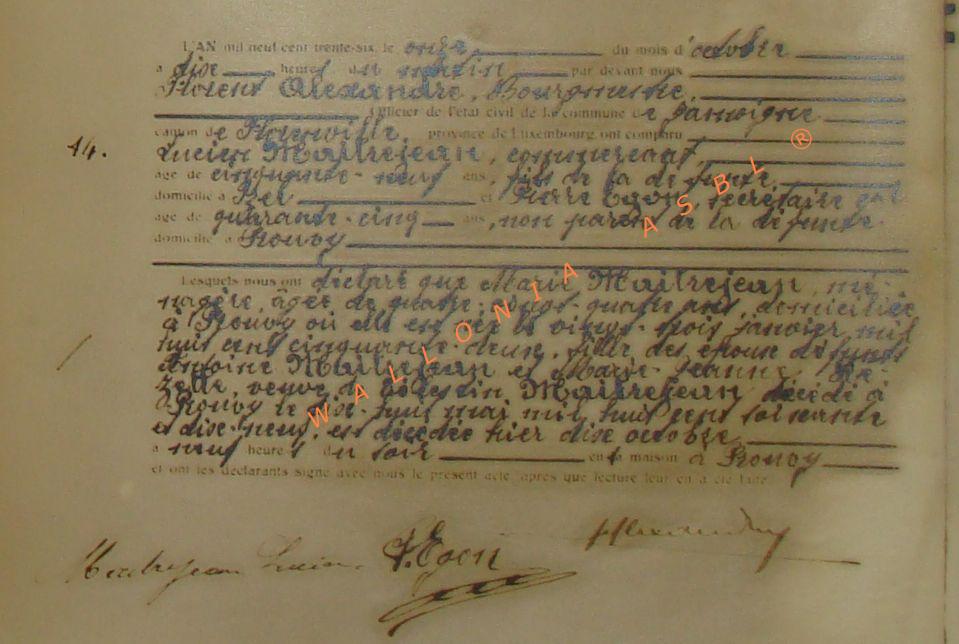 L'AN mil neuf cent trente-six, le onze du mois d'octobre
à dix heures du matin par devant nous
Florent Alexandre, Bourgmestre,
Officier de l'état civil de la commune de Jamoigne
canton de Florenville, province de Luxembourg ont comparu
14.
Lucien Maitrejean, commerçant,
âgé de cinquante-neuf ans, fils de la défunte,
domicilié à et Pierre Egon, secrétaire
âgé de quarante-cinq ans, non parent de la défunte
domicilié à Prouvy
Lesquels nous ont déclaré que Marie Maitrejean, mé-
nagère, âgée de quatre-vingt-quatre ans, domiciliée
à Prouvy où elle est née le vingt-trois janvier mil
huit cent cinquante-deux, fille des époux défunts
Antoine Maitrejean et Marie-Jeanne
zette, veuve de Célestin Maitrejean décédé à
Prouvy le dix-huit mai mil huit cent soixante
et dix-neuf, est décédée hier dix octobre
à neuf heures du soir en sa maison à Prouvy
et ont les déclarants signé avec nous le présent acte, après que lecture leur en a été faite.
Maitrejean Lucien P. Egon Alexandre
WALLONIA ASBL ®